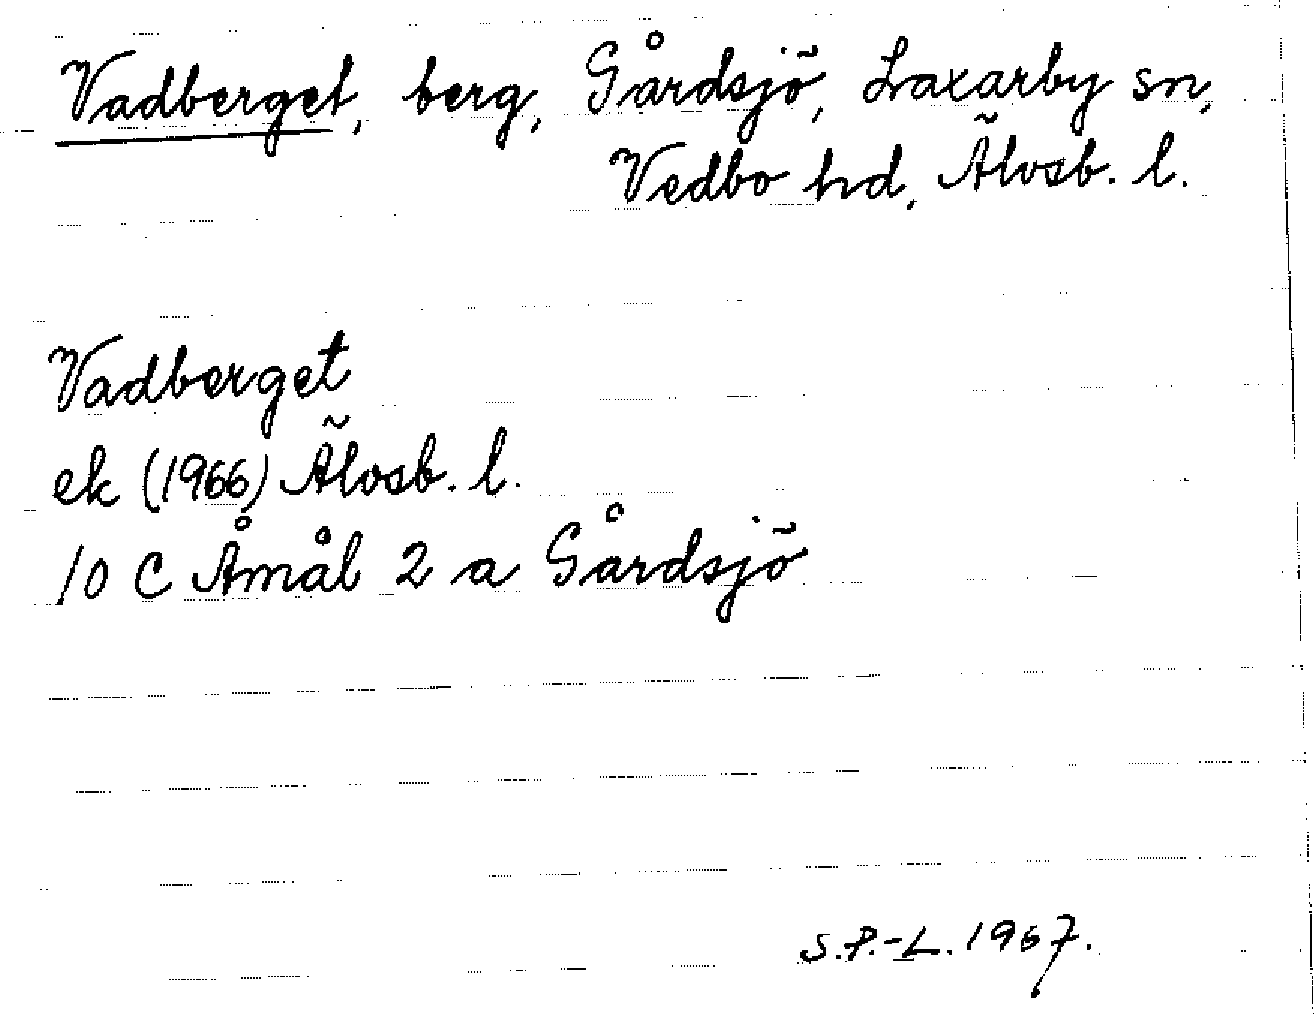 Vadberget, berg, Gårdsjö, Laxarby sn,
Vedbo hd, Älvsb. l.
Vadberget
ek (1966) Älvsb. l.
10 C Åmål 2 a Gårdsjö
S.P.-L. 1967.